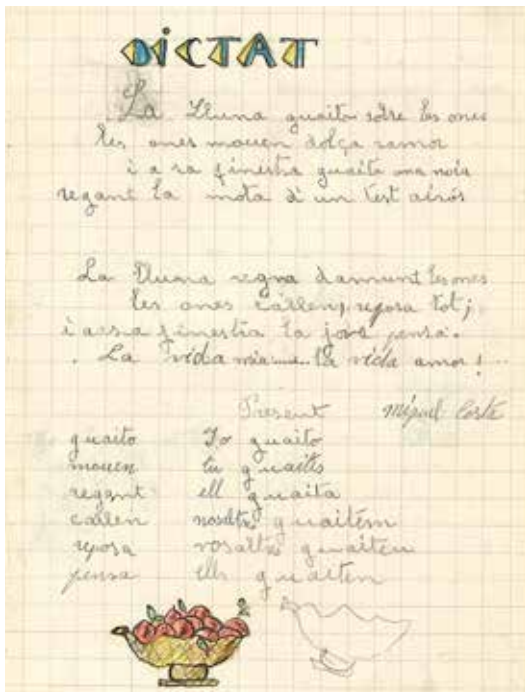 DICTAT
La Lluna guaita sobre les ones
les ones mouen dolça remor
i a sa finestra guaita una noia
regant la mata d'un test airós
La Lluna regna damunt les ones
les ones callen, reposa tot;
i a sa finestra la jove pensa.
La vida mia... la vida amor!...
Present Miquel Costa
guaito Jo guaito
mouen tu guaites
regant ell guaita
callen nosaltres guaitem
reposa vosaltres guaiteu
pensa ells guaiten